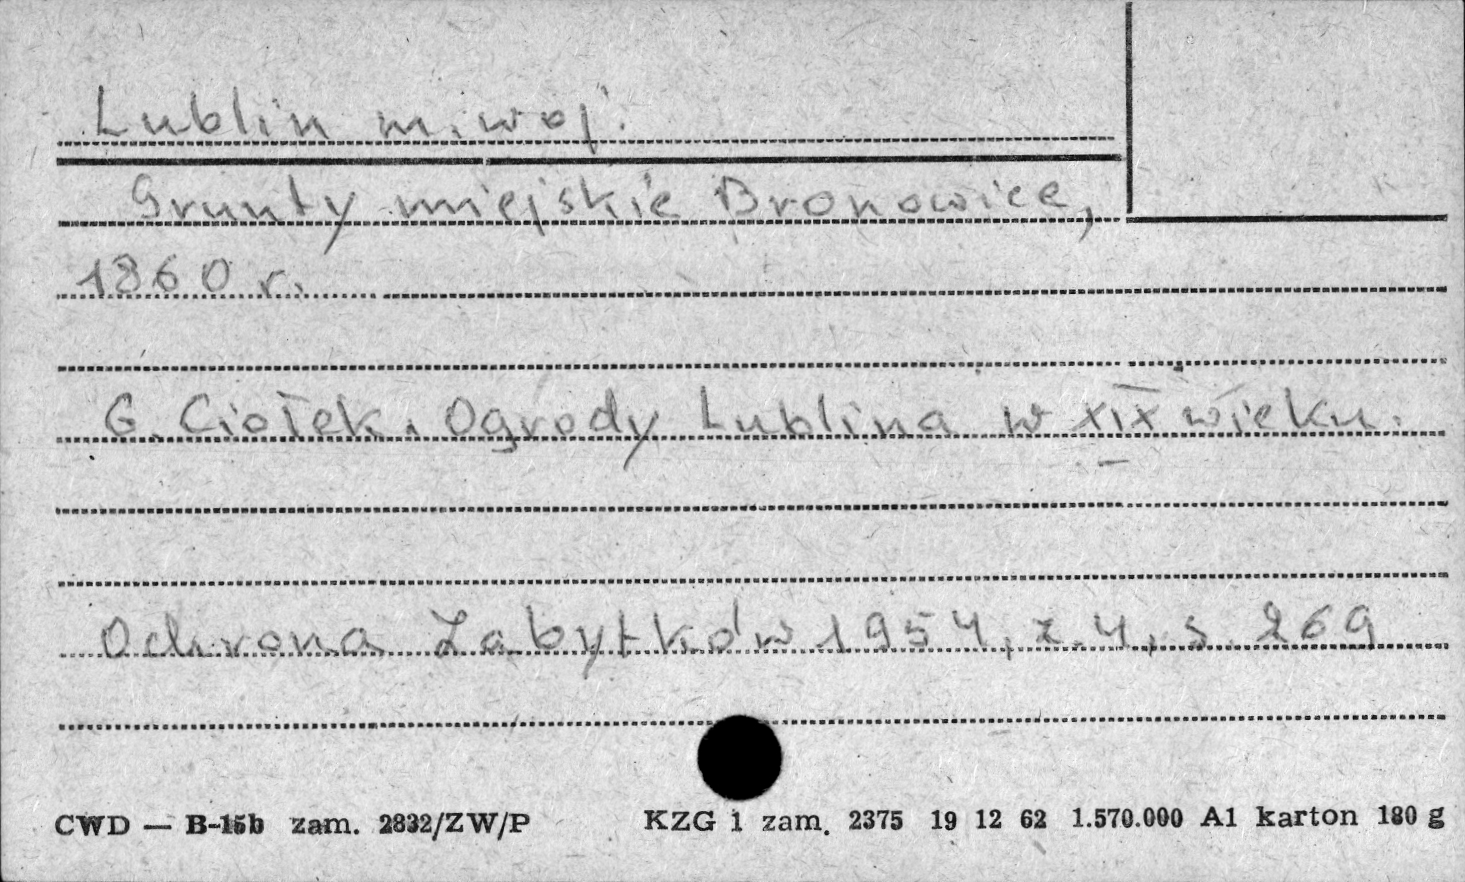 Lublin m. woj.
Grunty miejskie Bronowice,
1860 r.
G. Ciołek. Ogrody Lublina w XIX wieku.
Ochrona Zabytków 1954, z. 4, s. 269
CWD — B-15b zam. 2832/ZW/P KZG 1 zam. 2375 19 12 62 1.570.000 A1 karton 180 g